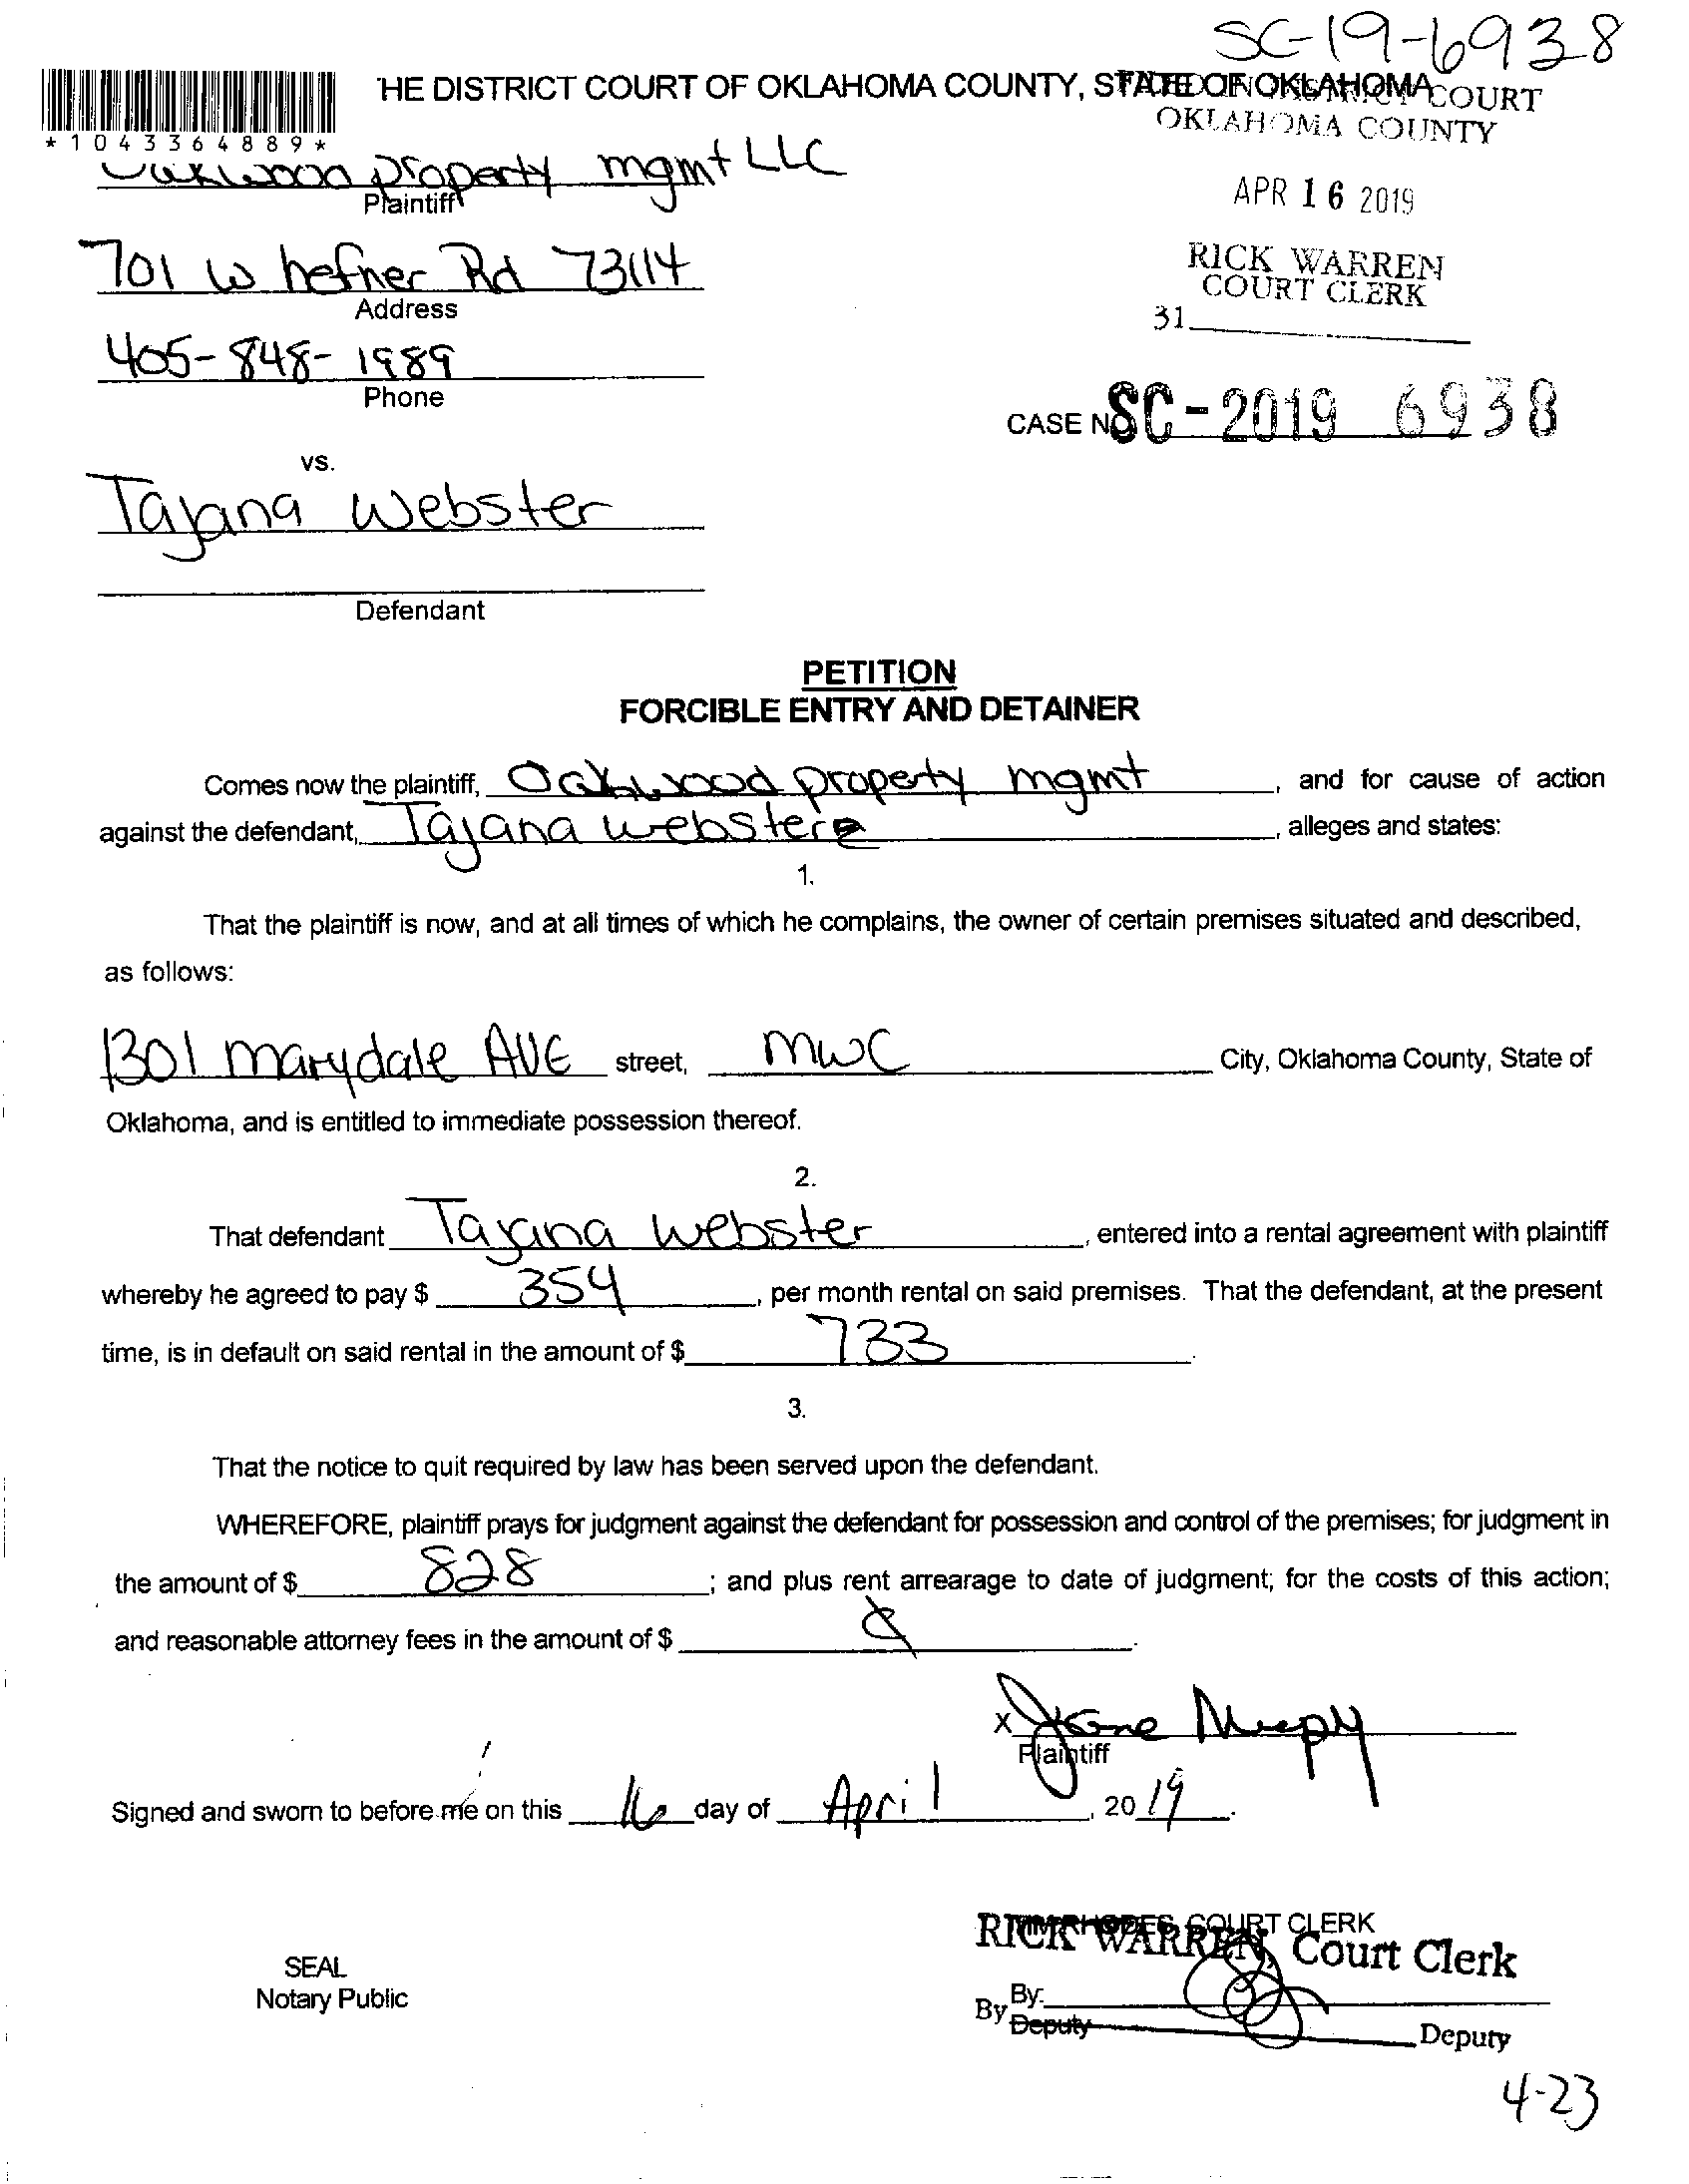 SC-19-6938
*1043364889*
THE DISTRICT COURT OF OKLAHOMA COUNTY, STATE OF OKLAHOMA
FILED IN DISTRICT COURT
OKLAHOMA COUNTY
Oakwood property mgmt LLC
Plaintiff
APR 16 2019
701 W hefner Rd 73114
Address
RICK WARREN
COURT CLERK
31
405-848-1989
Phone
CASE NO SC-2019 6938
vs.
Tajana Webster
Defendant
PETITION
FORCIBLE ENTRY AND DETAINER
Comes now the plaintiff, Oakwood property mgmt, and for cause of action
against the defendant, Tajana webster, alleges and states:
1.
That the plaintiff is now, and at all times of which he complains, the owner of certain premises situated and described,
as follows:
1301 marydale AVE street, mwc City, Oklahoma County, State of
Oklahoma, and is entitled to immediate possession thereof.
2.
That defendant Tajana Webster, entered into a rental agreement with plaintiff
whereby he agreed to pay $ 354, per month rental on said premises. That the defendant, at the present
time, is in default on said rental in the amount of $ 733.
3.
That the notice to quit required by law has been served upon the defendant.
WHEREFORE, plaintiff prays for judgment against the defendant for possession and control of the premises; for judgment in
the amount of $ 828; and plus rent arrearage to date of judgment; for the costs of this action;
and reasonable attorney fees in the amount of $
X
Plaintiff
Signed and sworn to before me on this 16 day of April, 2019.
COURT CLERK
RICK WARREN, Court Clerk
SEAL
Notary Public
By:
Deputy
By Deputy
4-23